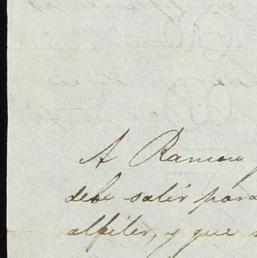 A Ramon
debe salir para
alfiler, y que